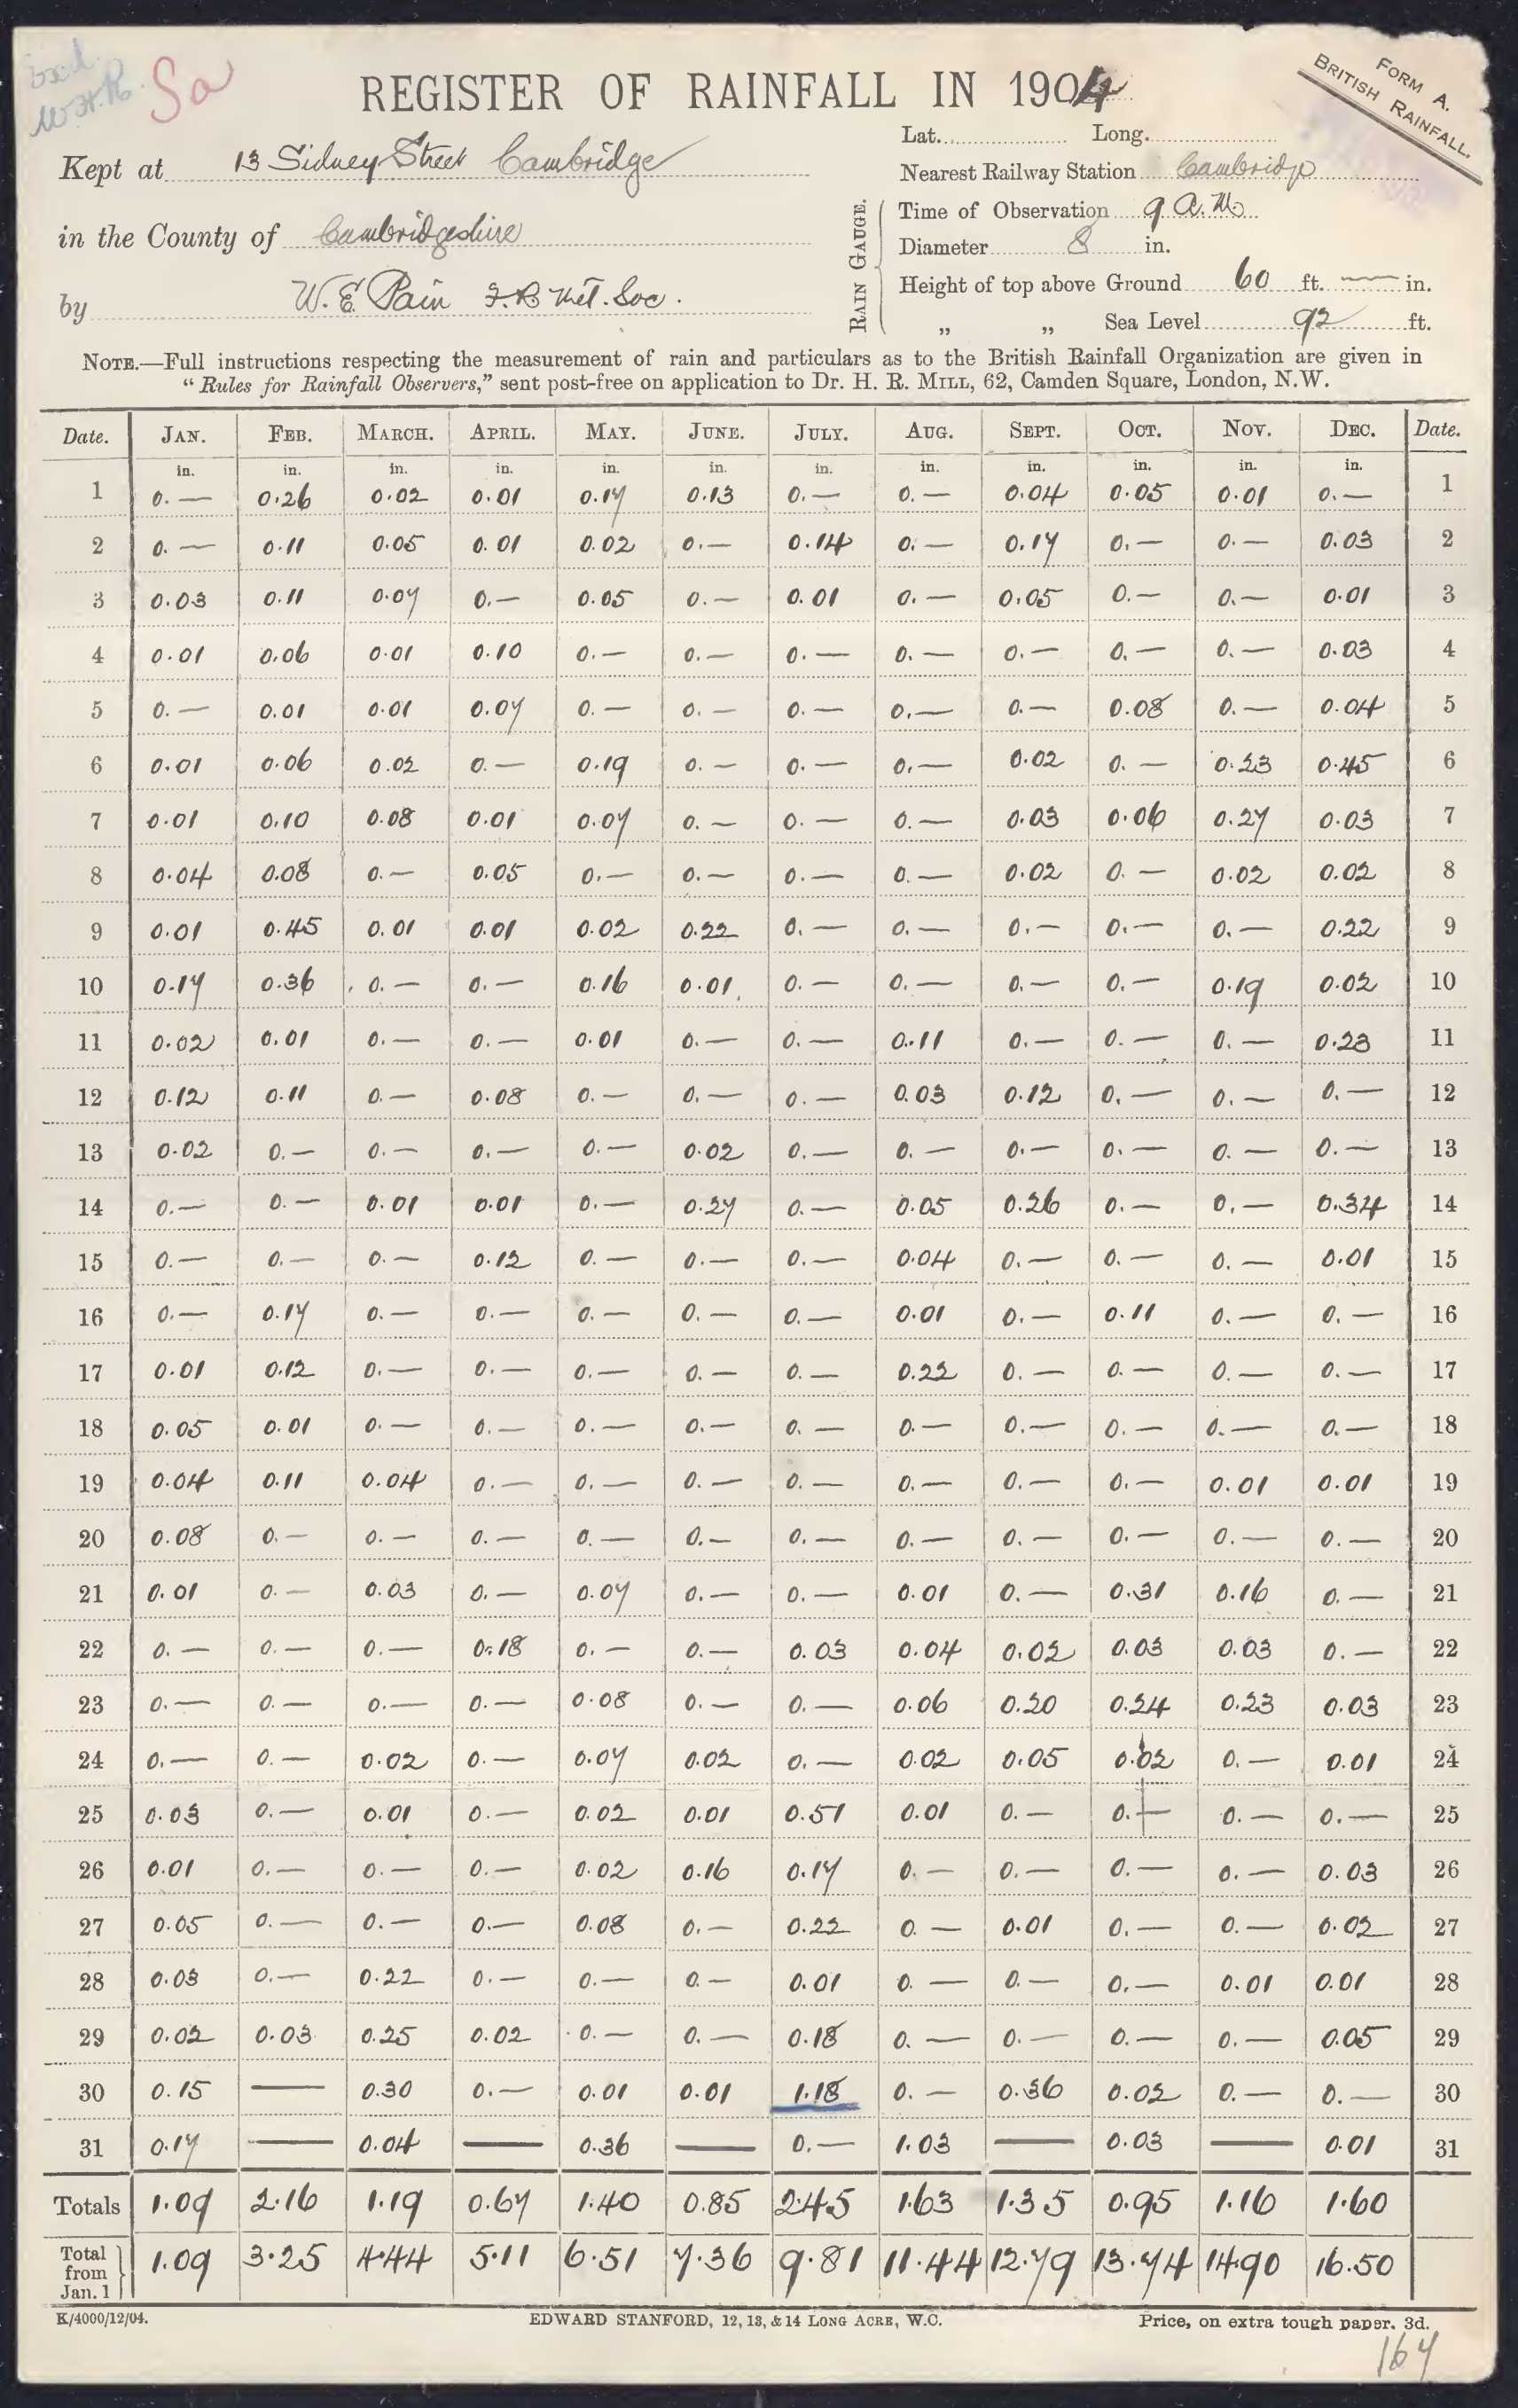 REGISTER OF RAINFALL IN 1904
FORM A.
BRITISH RAINFALL.
Sa
Kept at 13 Sidney Street Cambridge
in the County of Cambridgeshire
by W. E. Pain F. R. Met. Soc.
Lat. Long.
Nearest Railway Station Cambridge
RAIN GAUGE.
Time of Observation 9 a.m
Diameter 8 in.
Height of top above Ground 60 ft. — in.
„ „ Sea Level 92 ft.
NOTE.—Full instructions respecting the measurement of rain and particulars as to the British Rainfall Organization are given in
"Rules for Rainfall Observers," sent post-free on application to Dr. H. R. MILL, 62, Camden Square, London, N.W.
Date. JAN. FEB. MARCH. APRIL. MAY. JUNE. JULY. AUG. SEPT. OCT. NOV. DEC. Date.
in. in. in. in. in. in. in. in. in. in. in. in.
1 0.— 0.26 0.02 0.01 0.17 0.13 0.— 0.— 0.04 0.05 0.01 0.— 1
2 0.— 0.11 0.05 0.01 0.02 0.— 0.14 0.— 0.17 0.— 0.— 0.03 2
3 0.03 0.11 0.07 0.— 0.05 0.— 0.01 0.— 0.05 0.— 0.— 0.01 3
4 0.01 0.06 0.01 0.10 0.— 0.— 0.— 0.— 0.— 0.— 0.— 0.03 4
5 0.— 0.01 0.01 0.07 0.— 0.— 0.— 0.— 0.— 0.08 0.— 0.04 5
6 0.01 0.06 0.02 0.— 0.19 0.— 0.— 0.— 0.02 0.— 0.23 0.45 6
7 0.01 0.10 0.08 0.01 0.07 0.— 0.— 0.— 0.03 0.06 0.27 0.03 7
8 0.04 0.08 0.— 0.05 0.— 0.— 0.— 0.— 0.02 0.— 0.02 0.02 8
9 0.01 0.45 0.01 0.01 0.02 0.22 0.— 0.— 0.— 0.— 0.— 0.22 9
10 0.17 0.36 0.— 0.— 0.16 0.01 0.— 0.— 0.— 0.— 0.19 0.02 10
11 0.02 0.01 0.— 0.— 0.01 0.— 0.— 0.11 0.— 0.— 0.— 0.23 11
12 0.12 0.11 0.— 0.08 0.— 0.— 0.— 0.03 0.12 0.— 0.— 0.— 12
13 0.02 0.— 0.— 0.— 0.— 0.02 0.— 0.— 0.— 0.— 0.— 0.— 13
14 0.— 0.— 0.01 0.01 0.— 0.27 0.— 0.05 0.26 0.— 0.— 0.34 14
15 0.— 0.— 0.— 0.12 0.— 0.— 0.— 0.04 0.— 0.— 0.— 0.01 15
16 0.— 0.17 0.— 0.— 0.— 0.— 0.— 0.01 0.— 0.11 0.— 0.— 16
17 0.01 0.12 0.— 0.— 0.— 0.— 0.— 0.22 0.— 0.— 0.— 0.— 17
18 0.05 0.01 0.— 0.— 0.— 0.— 0.— 0.— 0.— 0.— 0.— 0.— 18
19 0.04 0.11 0.04 0.— 0.— 0.— 0.— 0.— 0.— 0.— 0.01 0.01 19
20 0.08 0.— 0.— 0.— 0.— 0.— 0.— 0.— 0.— 0.— 0.— 0.— 20
21 0.01 0.— 0.03 0.— 0.07 0.— 0.— 0.01 0.— 0.31 0.16 0.— 21
22 0.— 0.— 0.— 0.18 0.— 0.— 0.03 0.04 0.02 0.03 0.03 0.— 22
23 0.— 0.— 0.— 0.— 0.08 0.— 0.— 0.06 0.20 0.24 0.23 0.03 23
24 0.— 0.— 0.02 0.— 0.07 0.02 0.— 0.02 0.05 0.02 0.— 0.01 24
25 0.03 0.— 0.01 0.— 0.02 0.01 0.51 0.01 0.— 0.— 0.— 0.— 25
26 0.01 0.— 0.— 0.— 0.02 0.16 0.17 0.— 0.— 0.— 0.— 0.03 26
27 0.05 0.— 0.— 0.— 0.08 0.— 0.22 0.— 0.01 0.— 0.— 0.02 27
28 0.03 0.— 0.22 0.— 0.— 0.— 0.01 0.— 0.— 0.— 0.01 0.01 28
29 0.02 0.03 0.25 0.02 0.— 0.— 0.18 0.— 0.— 0.— 0.— 0.05 29
30 0.15 — 0.30 0.— 0.01 0.01 1.18 0.— 0.36 0.02 0.— 0.— 30
31 0.17 — 0.04 — 0.36 — 0.— 1.03 — 0.03 — 0.01 31
Totals 1.09 2.16 1.19 0.67 1.40 0.85 2.45 1.63 1.35 0.95 1.16 1.60
Total from Jan. 1 1.09 3.25 4.44 5.11 6.51 7.36 9.81 11.44 12.79 13.74 14.90 16.50
K/4000/12/04. EDWARD STANFORD, 12, 13, & 14 LONG ACRE, W.C. Price, on extra tough paper. 3d.
167